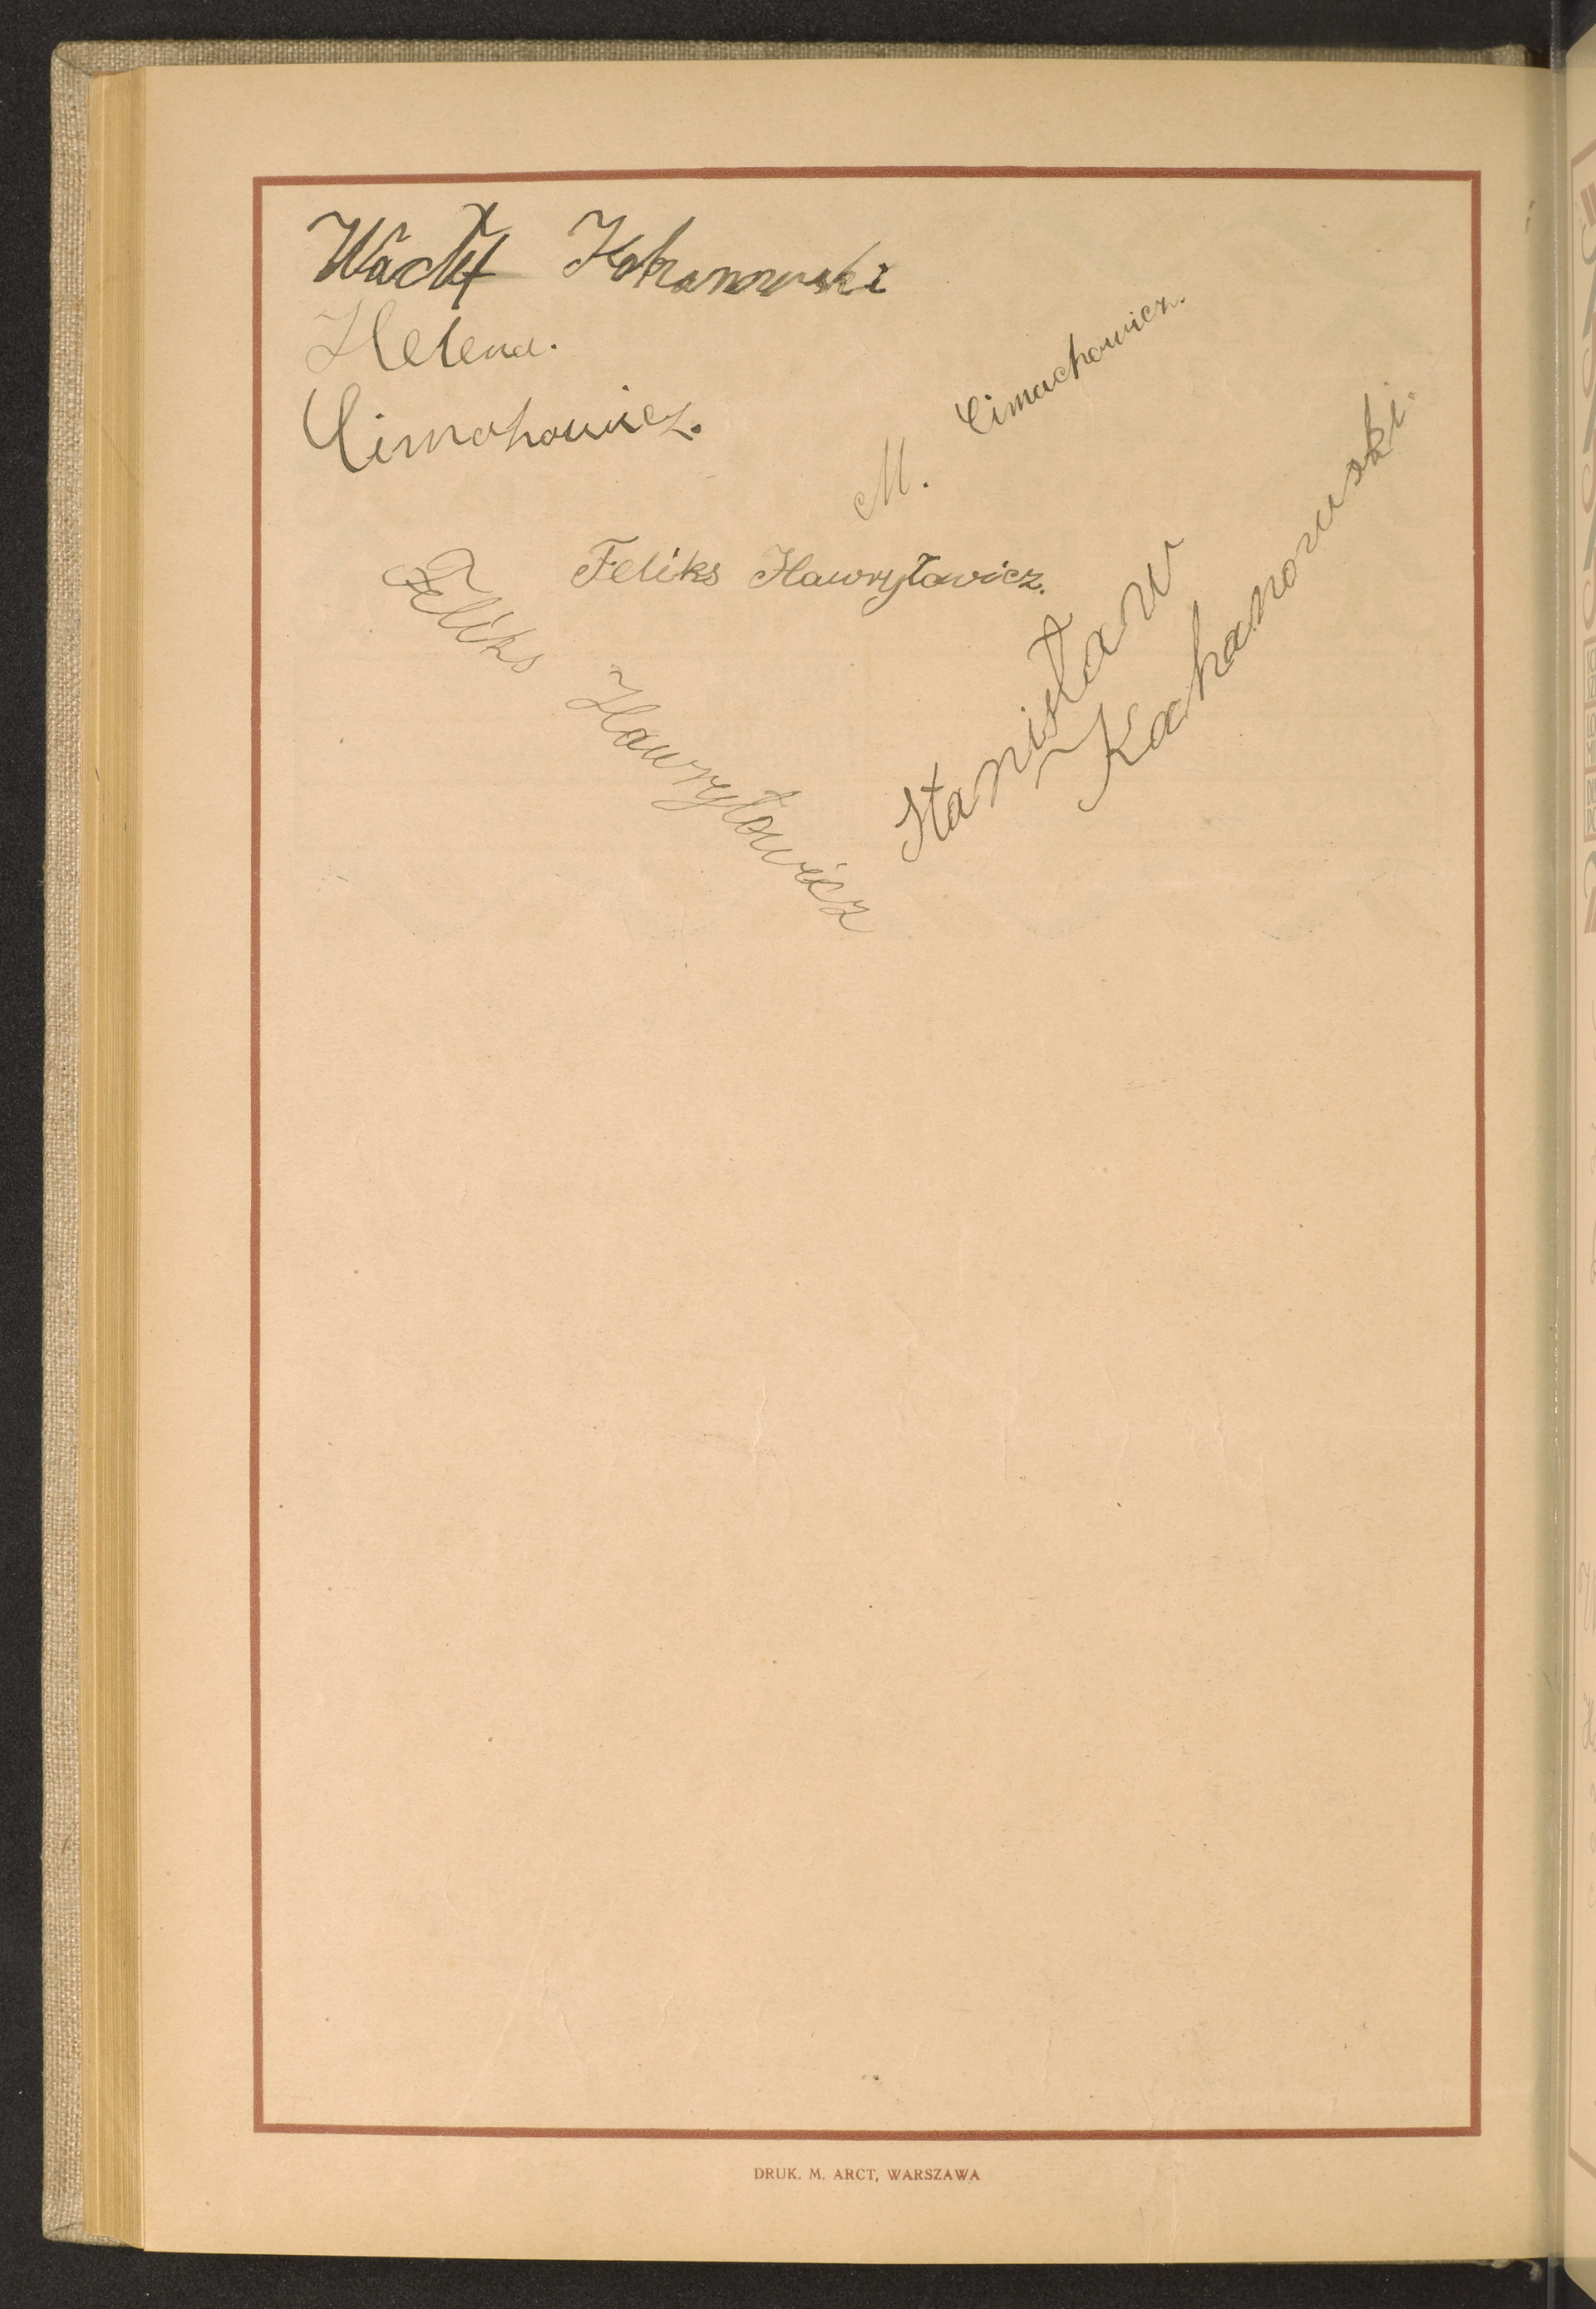 Wacłf Kohanowski
Helena.
Cimohowicz.
M. Cimachowicz.
Feliks Hawryłowicz.
Feliks Hawryłowicz
Stanisław
Kahanowski.
DRUK. M. ARCT, WARSZAWA